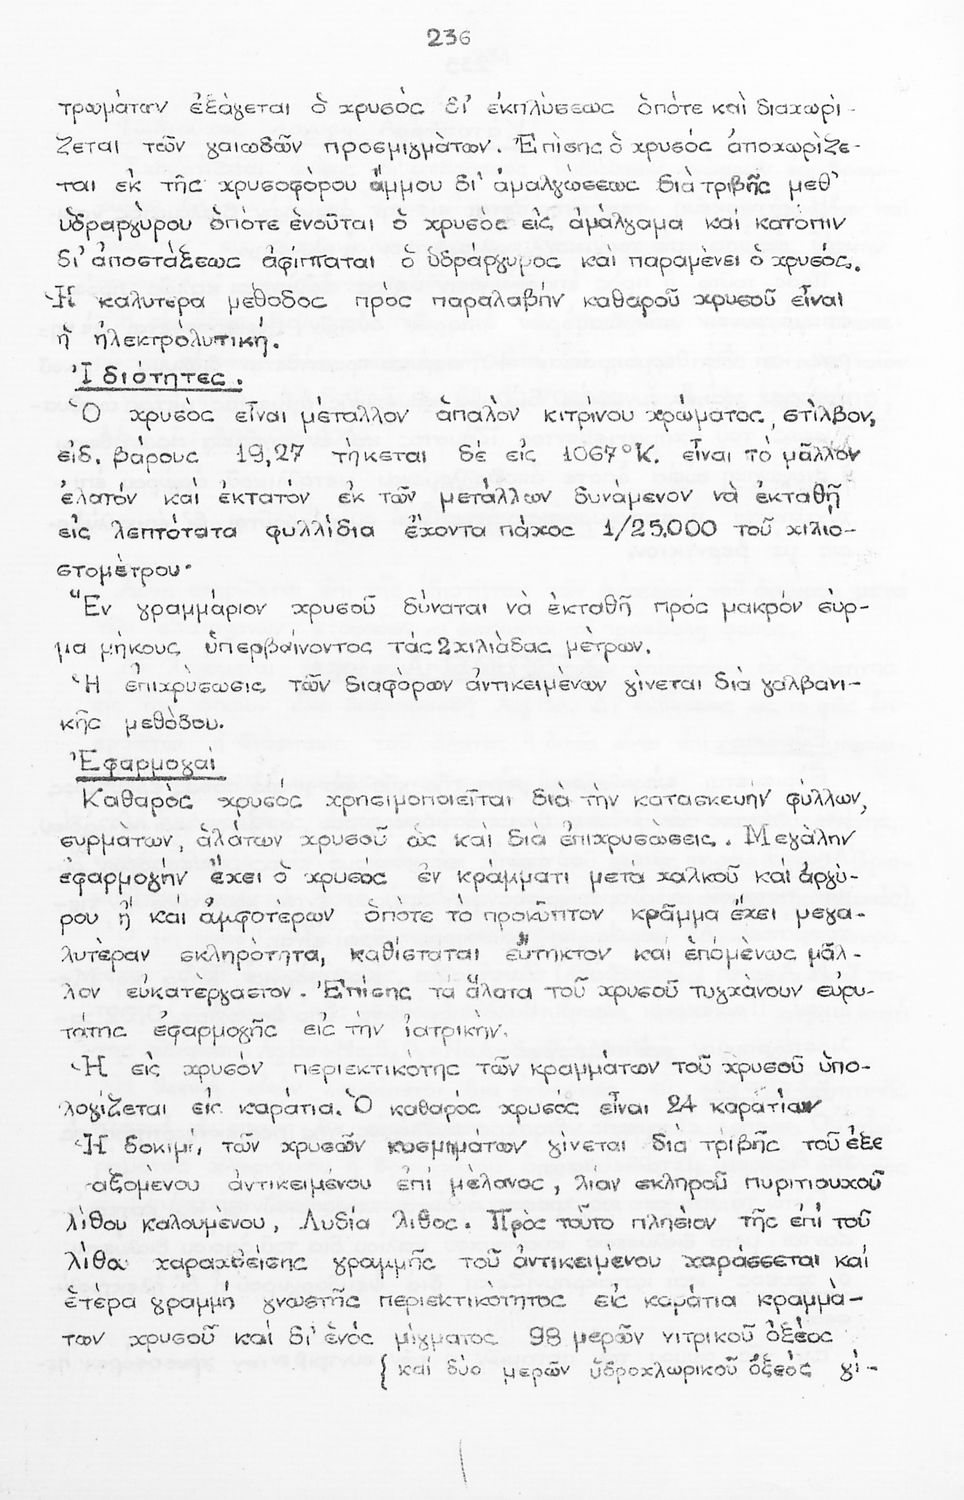 236
τρωμάτων ἐξάγεται ὁ χρυσός δι' ἐκπλύσεως ὁπότε καί διαχωρί-
ζεται τῶν γαιωδῶν προσμιγμάτων. Ἐπίσης ὁ χρυσός ἀποχωρίζε-
ται ἐκ τῆς χρυσοφόρου ἄμμου δι' ἀμαλγώσεως διά τριβῆς μεθ'
ὑδραργύρου ὁπότε ἑνοῦται ὁ χρυσός εἰς ἀμάλγαμα καί κατόπιν
δι' ἀποστάξεως ἀφίπταται ὁ ὑδράργυρος καί παραμένει ὁ χρυσός.
Ἡ καλυτέρα μέθοδος πρός παραλαβήν καθαροῦ χρυσοῦ εἶναι
ἡ ἠλεκτρολυτική.
Ἰδιότητες.
Ὁ χρυσός εἶναι μέταλλον ἁπαλόν κιτρίνου χρώματος, στίλβον,
εἰδ. βάρους 19,27 τήκεται δέ εἰς 1067°Κ. εἶναι τό μᾶλλον
ἐλατόν καί ἐκτατόν ἐκ τῶν μετάλλων δυνάμενον νά ἐκταθῇ
εἰς λεπτότατα φυλλίδια ἔχοντα πάχος 1/25.000 τοῦ χιλιο-
στομέτρου·
Ἕν γραμμάριον χρυσοῦ δύναται νά ἐκταθῇ πρός μακρόν σύρ-
μα μήκους ὑπερβαίνοντος τάς 2 χιλιάδας μέτρων.
Ἡ ἐπιχρύσωσις τῶν διαφόρων ἀντικειμένων γίνεται διά γαλβανι-
κῆς μεθόδου.
Ἐφαρμογαί
Καθαρός χρυσός χρησιμοποιεῖται διά τήν κατασκευήν φύλλων,
συρμάτων, ἁλάτων χρυσοῦ ὡς καί διά ἐπιχρυσώσεις. Μεγάλην
ἐφαρμογήν ἔχει ὁ χρυσός ἐν κράμματι μετά χαλκοῦ καί ἀργύ-
ρου ἤ καί ἀμφοτέρων ὁπότε τό προκῦπτον κρᾶμμα ἔχει μεγα-
λυτέραν σκληρότητα, καθίσταται εὔτηκτον καί ἑπομένως μᾶλ-
λον εὐκατέργαστον. Ἐπίσης τά ἅλατα τοῦ χρυσοῦ τυγχάνουν εὐρυ-
τάτης ἐφαρμογῆς εἰς τήν ἰατρικήν.
Ἡ εἰς χρυσόν περιεκτικότης τῶν κραμμάτων τοῦ χρυσοῦ ὑπο-
λογίζεται εἰς καράτια. Ὁ καθαρός χρυσός εἶναι 24 καρατίων
Ἡ δοκιμή τῶν χρυσῶν κοσμημάτων γίνεται διά τριβῆς τοῦ ἐξε
ταζομένου ἀντικειμένου ἐπί μέλανος, λίαν σκληροῦ πυριτιούχου
λίθου καλουμένου, Λυδία λίθος. Πρός τοῦτο πλησίον τῆς ἐπί τοῦ
λίθου χαραχθείσης γραμμῆς τοῦ ἀντικειμένου χαράσσεται καί
ἑτέρα γραμμή γνωστῆς περιεκτικότητος εἰς καράτια κραμμά-
των χρυσοῦ καί δι' ἑνός μίγματος 98 μερῶν νιτρικοῦ ὀξέος
{ καί δύο μερῶν ὑδροχλωρικοῦ ὀξέος γί-